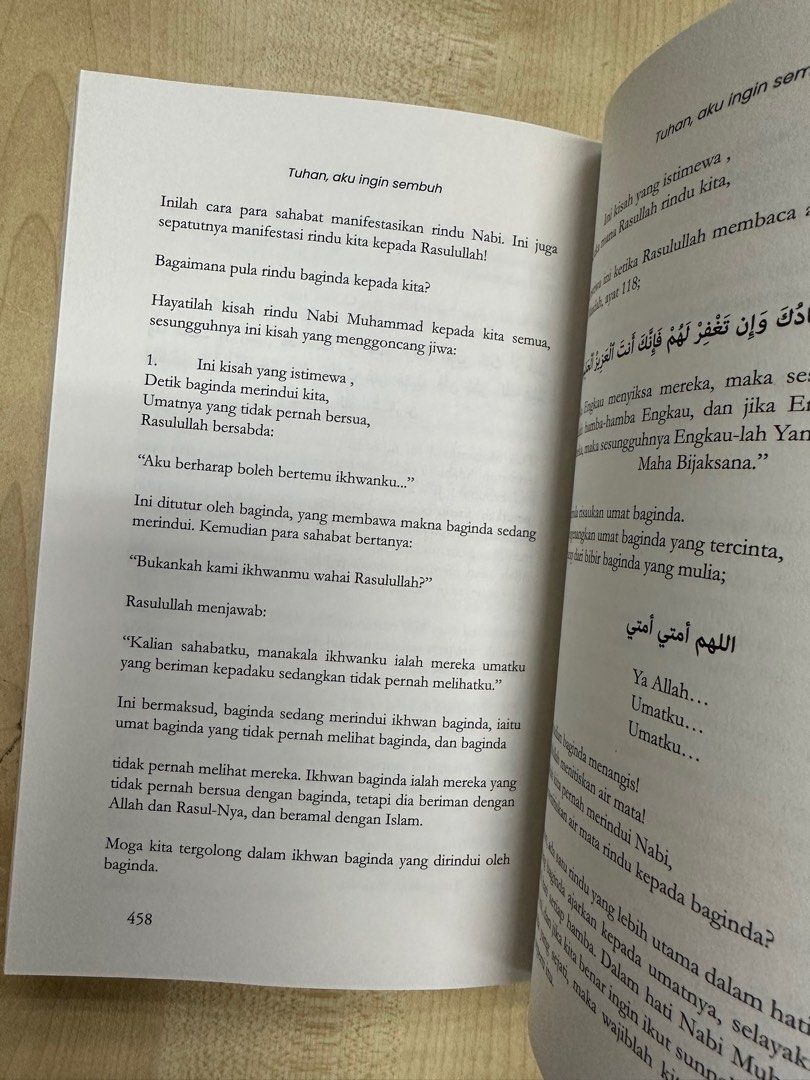 Tuhan, aku ingin sembuh
Inilah cara para sahabat manifestasikan rindu Nabi. Ini juga
sepatutnya manifestasi rindu kita kepada Rasulullah!
Bagaimana pula rindu baginda kepada kita?
Hayatilah kisah rindu Nabi Muhammad kepada kita semua,
sesungguhnya ini kisah yang menggoncang jiwa:
1. Ini kisah yang istimewa ,
Detik baginda merindui kita,
Umatnya yang tidak pernah bersua,
Rasulullah bersabda:
“Aku berharap boleh bertemu ikhwanku...”
Ini ditutur oleh baginda, yang membawa makna baginda sedang
merindui. Kemudian para sahabat bertanya:
“Bukankah kami ikhwanmu wahai Rasulullah?”
Rasulullah menjawab:
“Kalian sahabatku, manakala ikhwanku ialah mereka umatku
yang beriman kepadaku sedangkan tidak pernah melihatku.”
Ini bermaksud, baginda sedang merindui ikhwan baginda, iaitu
umat baginda yang tidak pernah melihat baginda, dan baginda
tidak pernah melihat mereka. Ikhwan baginda ialah mereka yang
tidak pernah bersua dengan baginda, tetapi dia beriman dengan
Allah dan Rasul-Nya, dan beramal dengan Islam.
Moga kita tergolong dalam ikhwan baginda yang dirindui oleh
baginda.
458
Tuhan, aku ingin
Ini kisah yang istimewa ,
mana Rasullah rindu kita,
ini ketika Rasulullah membaca
ayat 118;
وَإِن تَغْفِرْ لَهُمْ فَإِنَّكَ أَنتَ ٱلْعَزِيزُ
Engkau menyiksa mereka, maka
hamba-hamba Engkau, dan jika
maka sesungguhnya Engkau-lah Yang
Maha Bijaksana.”
risaukan umat baginda.
umat baginda yang tercinta,
dari bibir baginda yang mulia;
اللهم أمتي أمتي
Ya Allah…
Umatku…
Umatku…
baginda menangis!
menitiskan air mata!
pernah merindui Nabi,
air mata rindu kepada baginda?
satu rindu yang lebih utama dalam hati
baginda ajarkan kepada umatnya,
setiap hamba. Dalam hati Nabi
jika kita benar ingin ikut
yang sejati, maka wajiblah